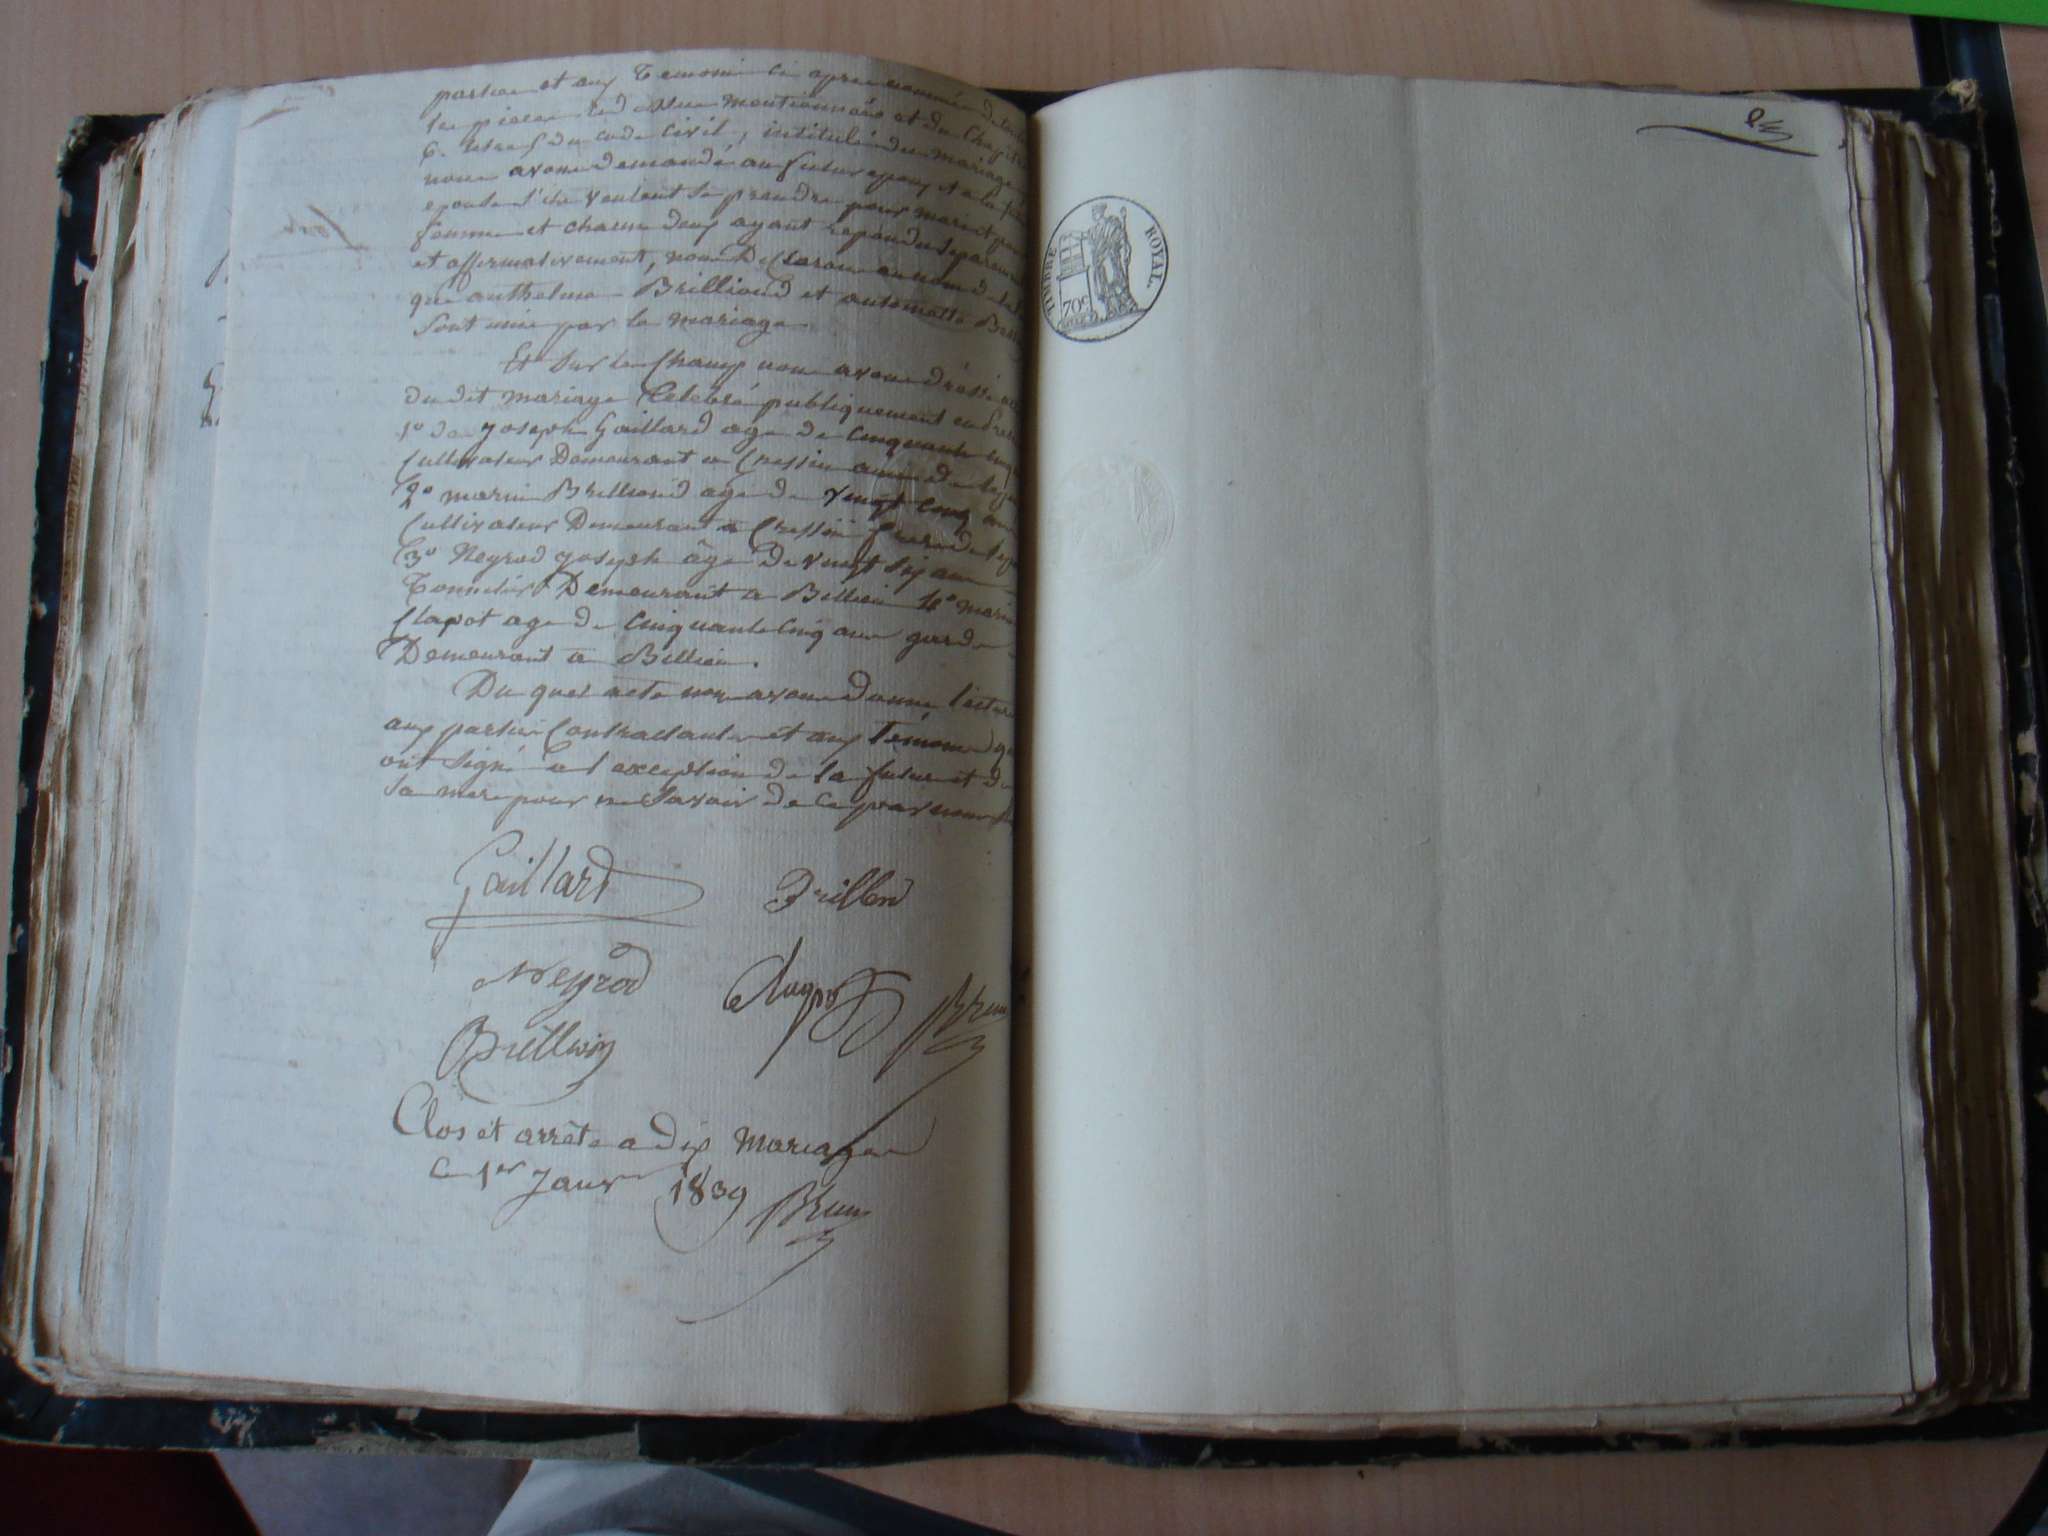 partie et aux Temoins ci apres nommés de toutes
les pieces ci dessus mentionnés et du Chapitre
6. titre 5 du code Civil, intitulé du mariage
nous avons demandé au futur epoux et a la
epouse s'ils veulent se prendre pour mari et pour
femme et chacun deux ayant repondu séparement
et affirmativement, nous Declarons au nom de la
que anthelme Brillioud et antoinette
sont unis par le mariage.
Et sur le Champ nous avons dréssé
du dit mariage Celebré publiquement
1° de Joseph Gaillard age de Cinquante
Cultivateur Demeurant a Cressin ami de
2° marin Brillioud agé de vingt cinq ans
Cultivateur Demeurant a Cressin frere de
3° Neyrod Joseph âgé De vingt six ans
Tonnelier Demeurant a Bellieu 4° marin
Clapot age de Cinquante cinq ans garde
Demeurant a Bellieu.
Du quel acte nous avons donné lecture
aux parties Contractantes et aux Témoins qui
ont signé a l exception de la future et de
sa mere pour ne savoir de ce par nous
Gaillard Brillon
Neyrod
Brun
Clos et arrêté a dix Mariages
le 1er Janv 1839 Brun
TIMBRE ROYAL.
70c